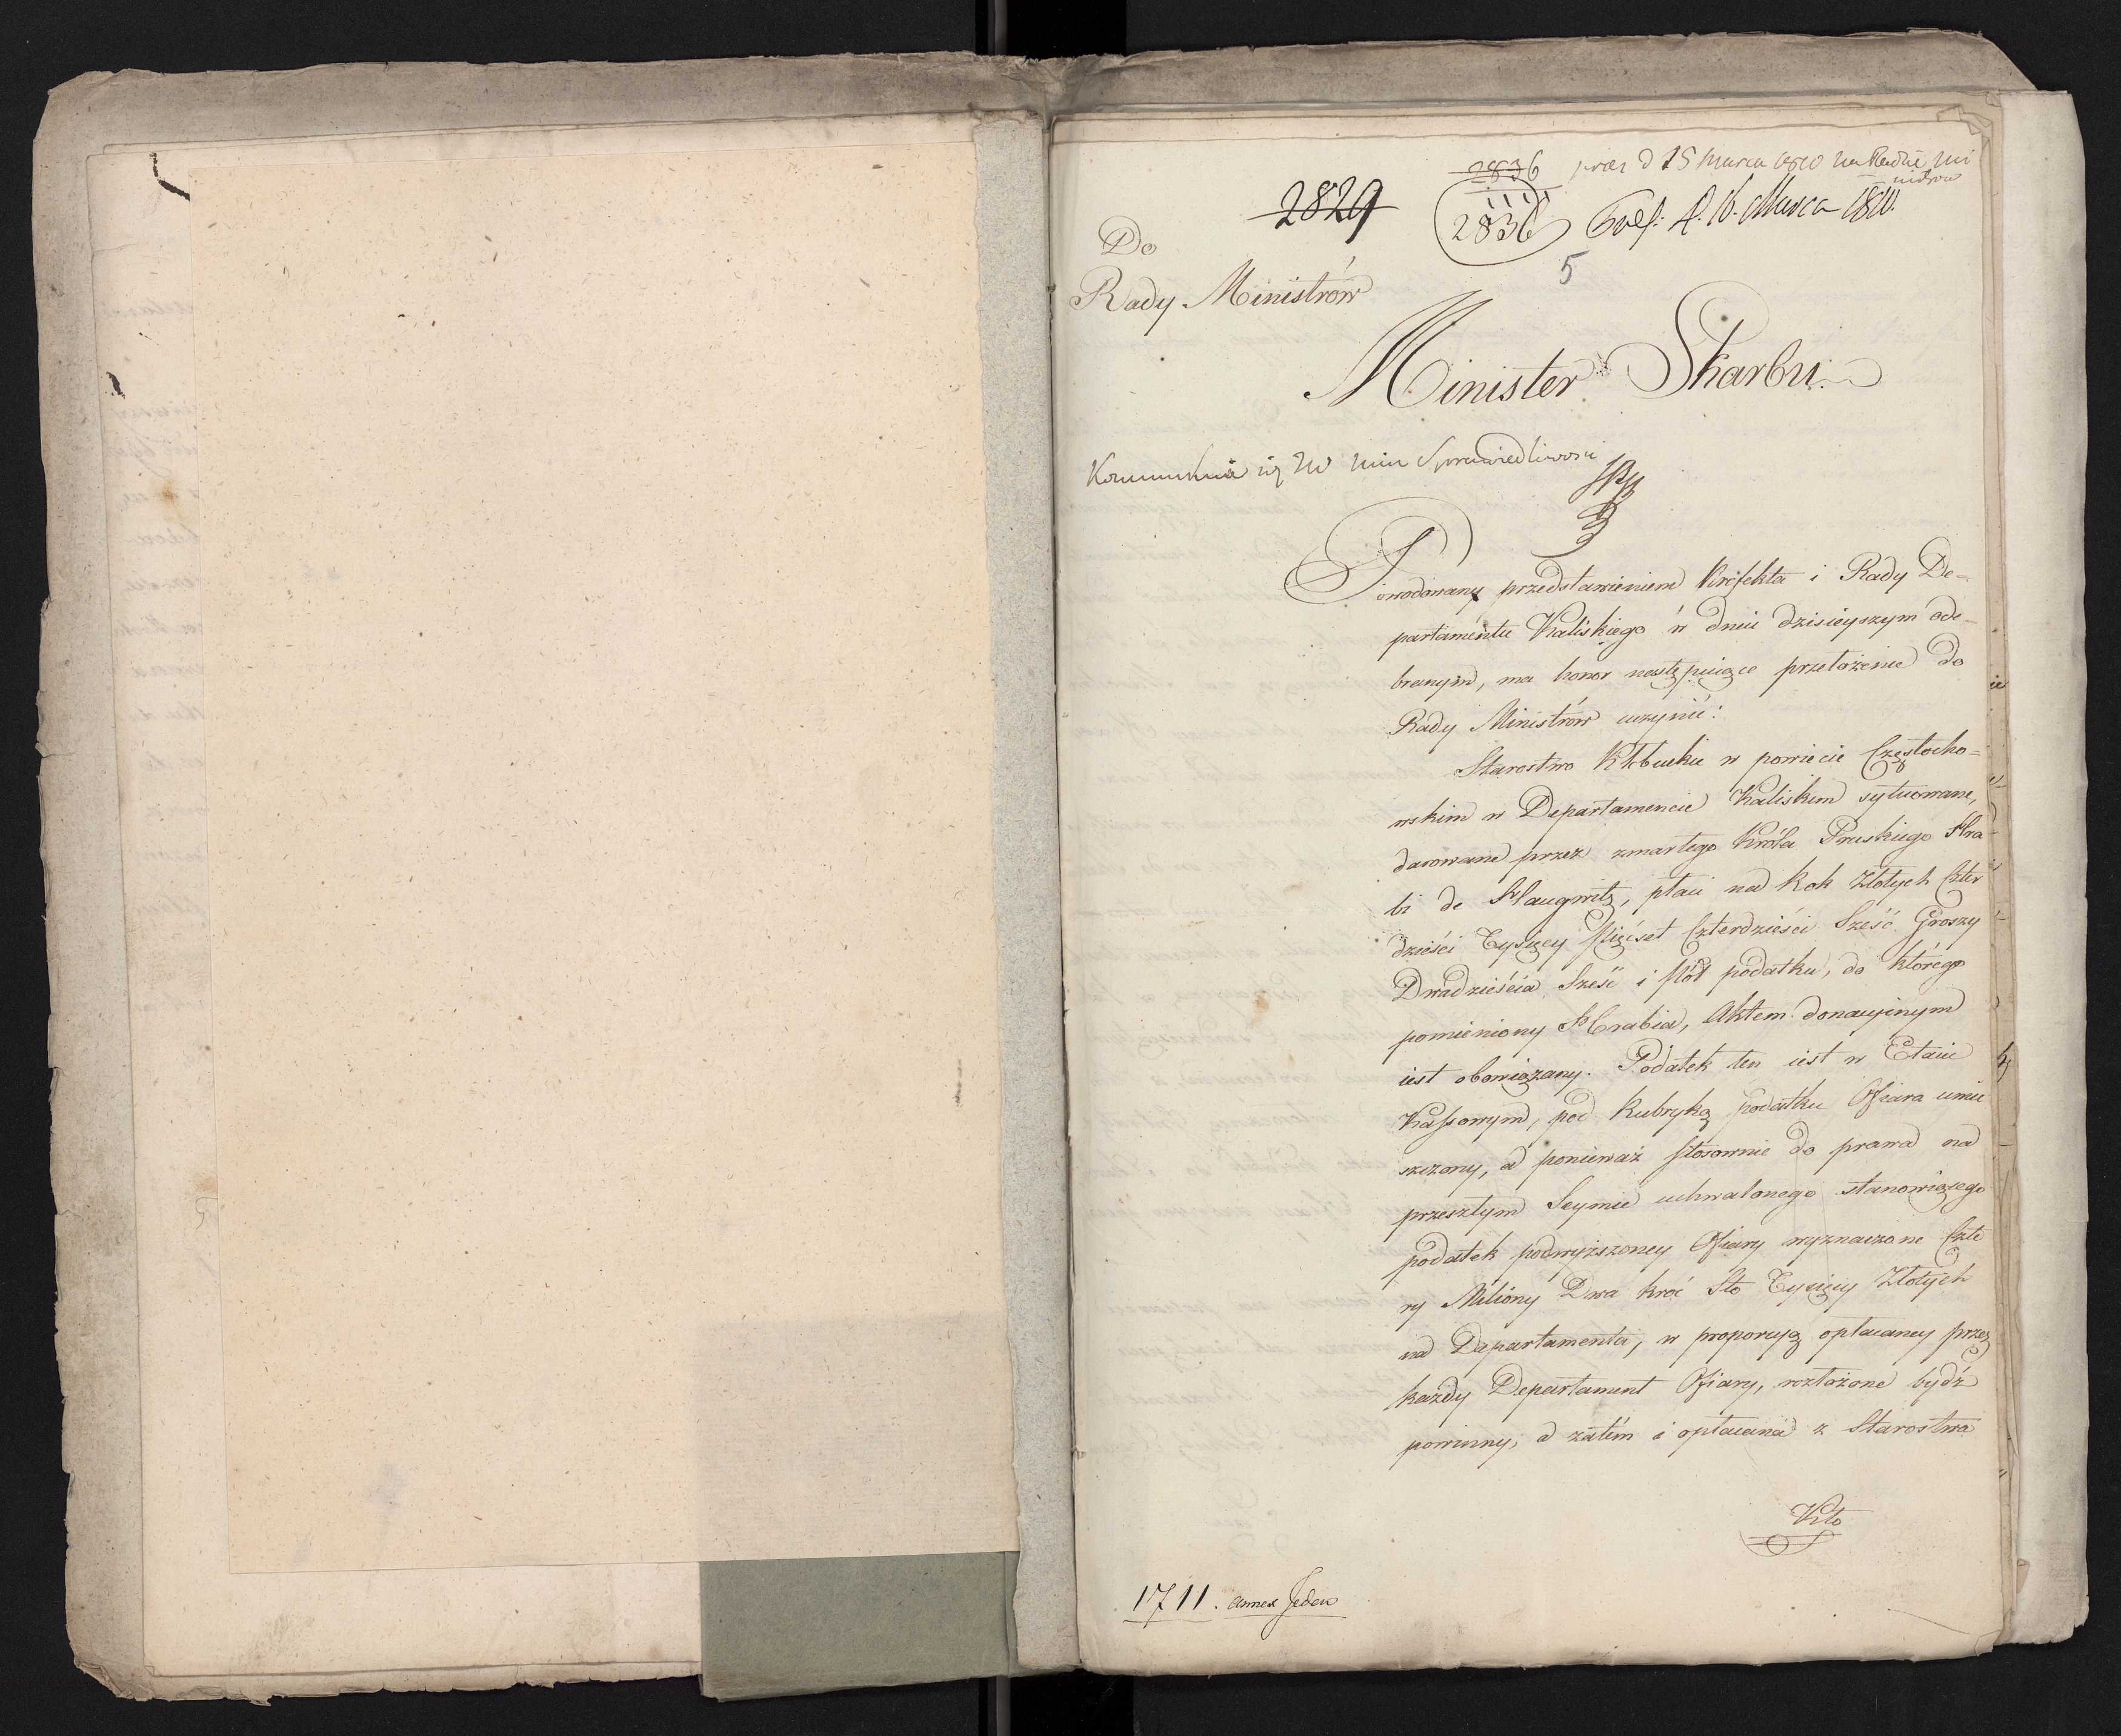 2836 prez d 15 Marca 1810 na Radzie Mi
nistrow
2829
2836 Pres: d. 16. Marca 1810.
5
Do
Rady Ministrów
Minister Skarbu
Kommunikacia się W Min Sprawiedliwosci
Powodowany przedstawieniem Prefekta i Rady De-
partamentu Kaliskiego w dniu dzisieyszym ode-
branym, ma honor następuiące przełożenie do
Rady Ministrów uczynić:
Starostwo Kłobuckie w powiecie Częstocho=
wskim w Departamencie Kaliskim sytuowane,
darowane przez zmarłego Króla Pruskiego Hra
bi de Haugwitz, płaci na Rok Złotych Czter
dzieści Tysięcy Pięćset Czterdzieści Sześć Groszy
Dwadzieścia Sześć i Pół podatku, do którego
pomieniony Hrabia, Aktem donacyinym
iest obowiązany. Podatek ten iest w Etacie
Kassowym, pod Rubryką podatku Ofiara umie
szczony, a ponieważ stosownie do prawa na
przeszłym Seymie uchwalonego stanowiącego
podatek podwyższoney Ofiary wyznaczone Czte
ry Miliony Dwa kroć Sto Tysięcy Złotych
na Departamenta, w proporcyą opłacaney przez
każdy Departament Ofiary, rozłożone bydź
powinny, a zatém i opłacana z Starostwa
Kło
1711. annex Jeden